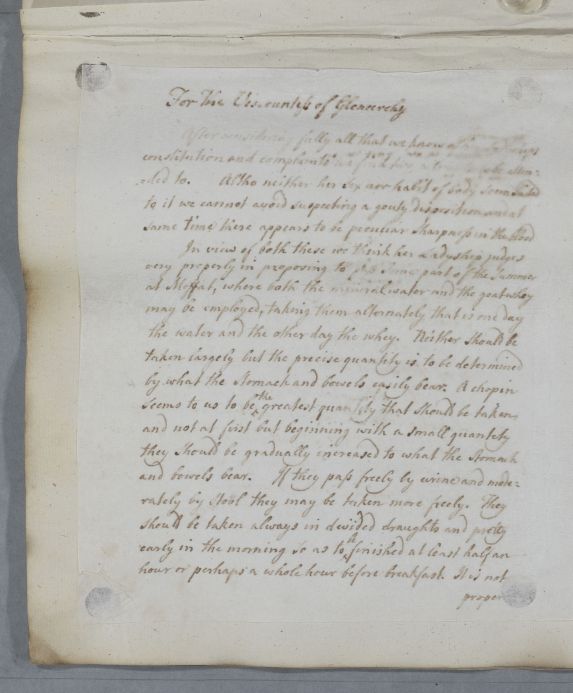 For the Viscountess of Glenorchy
After considering fully all that we know of
constitution and complaints we find
ded to. Altho neither her Sex nor habit of body seem suited
to it we cannot avoid suspecting a gouty disposition and at
same time there appears to be peculiar sharpness in the blood
In view of both these we think her Ladyship judges
very properly in proposing to pass some part of the Summer
at Moffat, where both the mineral water and the goat whey
may be employed, taking them alternately that is one day
the water and the other day the whey. Neither should be
taken largely but the precise quantity is to be determined
by what the Stomach and bowels easily bear. A chopin
seems to us to be the greatest quantity that should be taken,
and not at first but beginning with a small quantity
they should be gradually increased to what the Stomach
and bowels bear. If they pass freely by urine and mode:
rately by Stool they may be taken more freely. They
should be taken always in divided draughts and pretty
early in the morning so as to be finished at least half an
hour or perhaps a whole hour before breakfast. It is not
proper